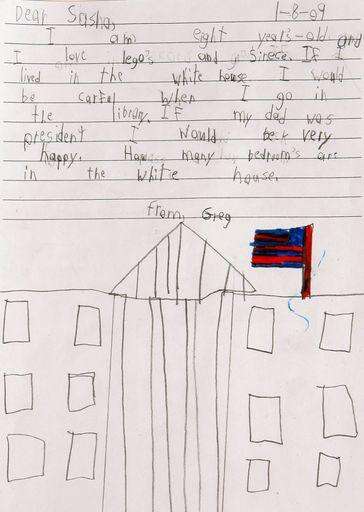 Dear Sasha, 1-8-09
I am eight years-old and
I love lego's and If I
lived in the white house I would
be carful when I go in
the library. If my dad was
president I would be very
happy. How many bedroom's are
in the white house.
from, Greg